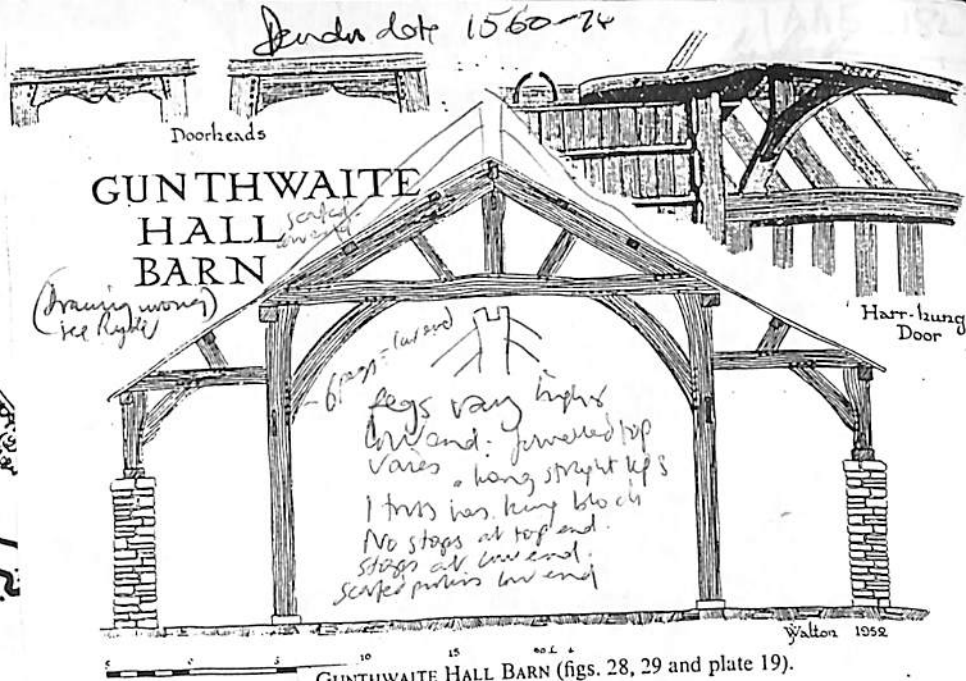 Dendro date 1560-74
Doorheads
GUNTHWAITE
HALL
BARN
scarfed
low end
(Drawing wrong)
see Ryder
Harr-hung
Door
6 pegs = low end
Pegs vary higher
low end. jowelled top
varies
straight
1 truss has king block
No stops at top end.
stops at low end.
scarfed purlins low end
Walton 1952
5 0 5 10 15
GUNTHWAITE HALL BARN (figs. 28, 29 and plate 19).